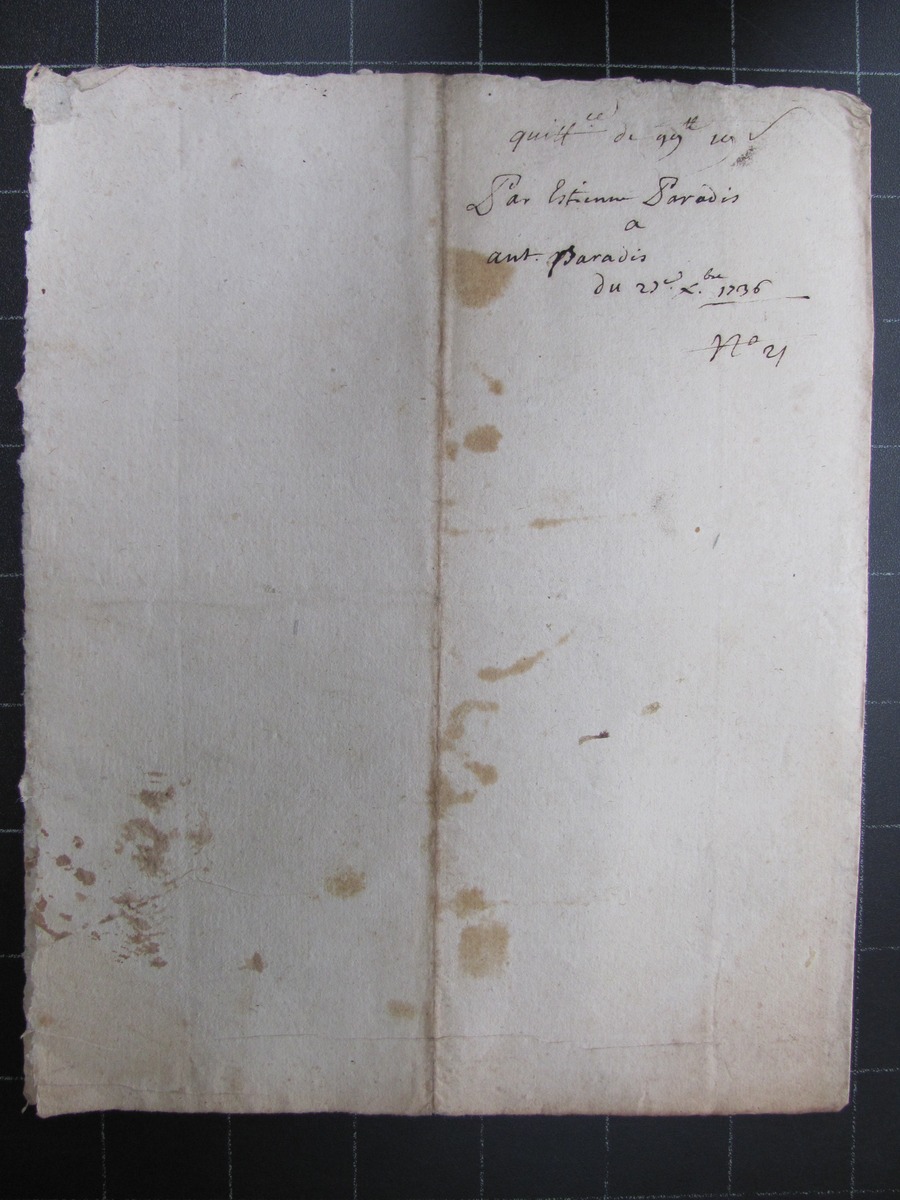 quitt.ce de 99tt 10s
Par Estienne Paradis
a
ant. Paradis
du 27e Xbre 1736
No 21